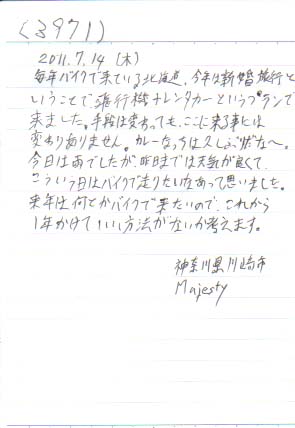 (3971)
2011.7.14 (木)
毎年バイクで来ている北海道、今年は新婚旅行と
いうことで、飛行機+レンタカーというプランで
来ました。手段は変わっても、ここに来る事には
変わりありません。カレーなっちは久しぶりだな〜。
今日は雨でしたが、昨日までは天気が良くて、
こういう日はバイクで走りたいなあって思いました。
来年は何とかバイクで来たいので、これから
1年かけていい方法がないか考えます。
神奈川県川崎市
Majesty